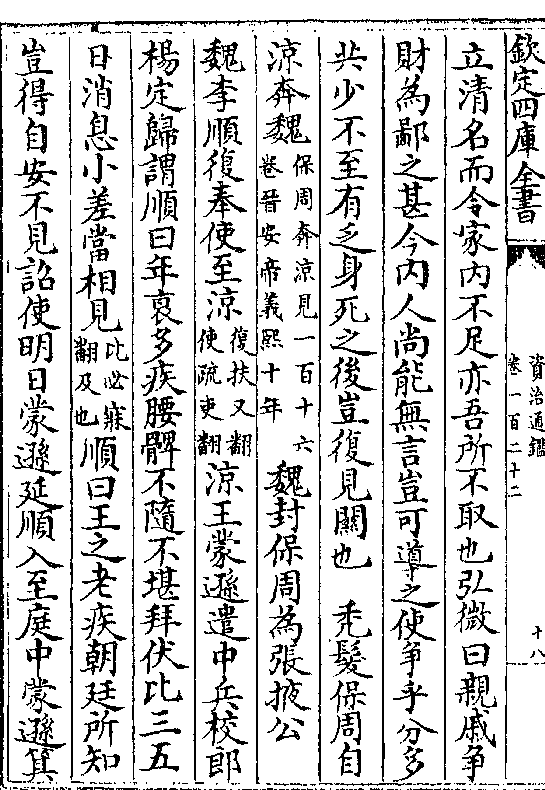 欽定四庫全書
資治通鑑
卷一百二十二
十八
立清名而令家内不足亦吾所不取也弘微曰親戚争
財為鄙之甚今内人尚能無言豈可導之使争乎分多
共少不至有乏身死之後豈復見關也　秃髮保周自
涼奔魏保周奔涼見一百十六卷晉安帝義熙十年魏封保周為張掖公
魏李順復奉使至涼復扶又翻使疏吏翻涼王蒙遜遣中兵校郎
楊定歸謂順曰年衰多疾腰髀不隨不堪拜伏比三五
日消息小差當相見比必寐翻及也順曰王之老疾朝廷所知
豈得自安不見詔使明日蒙遜延順入至庭中蒙遜箕